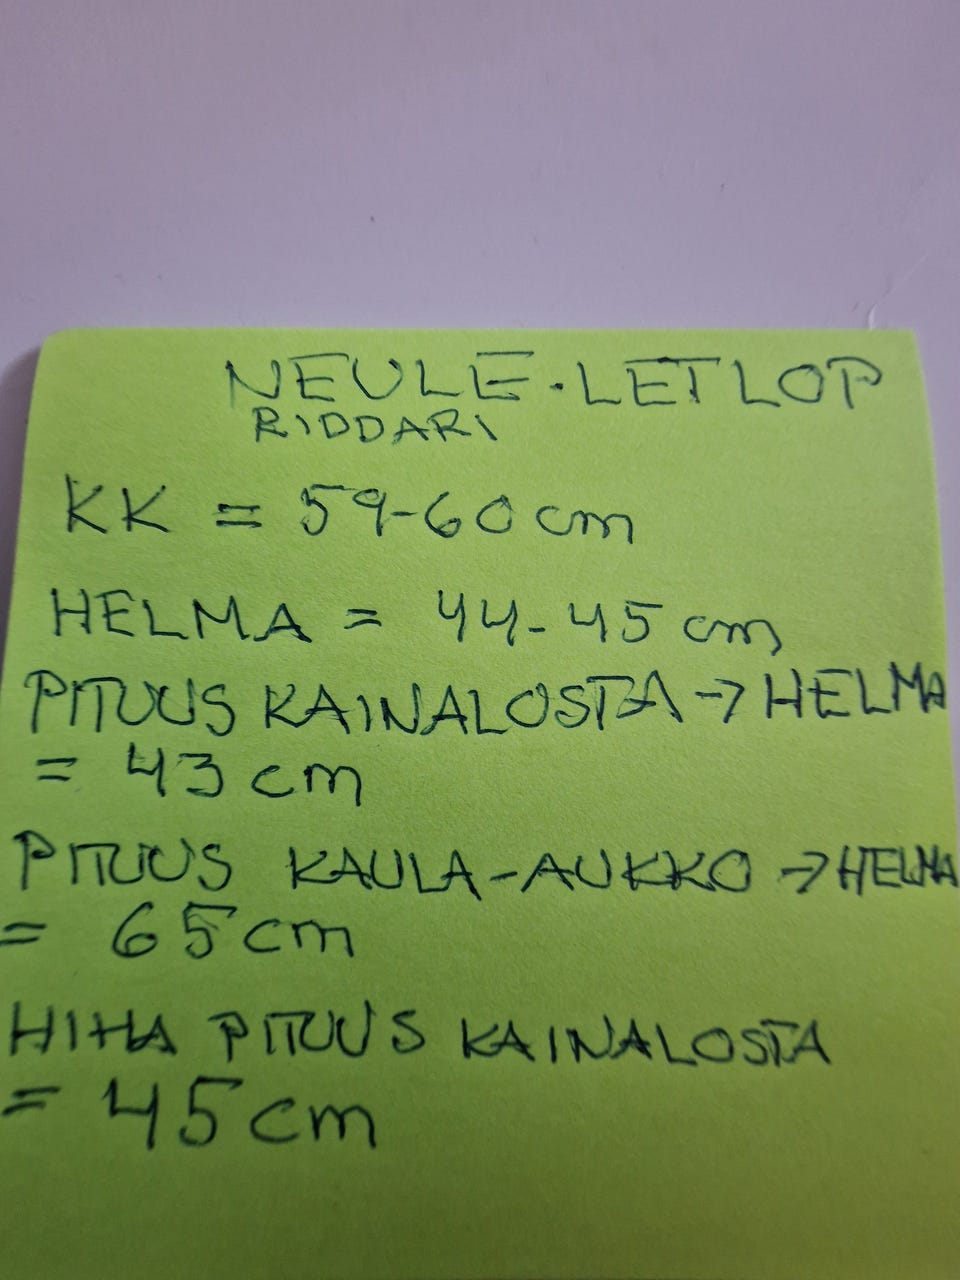 NEULE・LETLOP
RIDDARI
KK = 59-60 cm
HELMA = 44-45 cm
PITUUS KAINALOSTA → HELMA
= 43 cm
PITUUS KAULA-AUKKO → HELMA
= 65 cm
HIHA PITUUS KAINALOSTA
= 45 cm